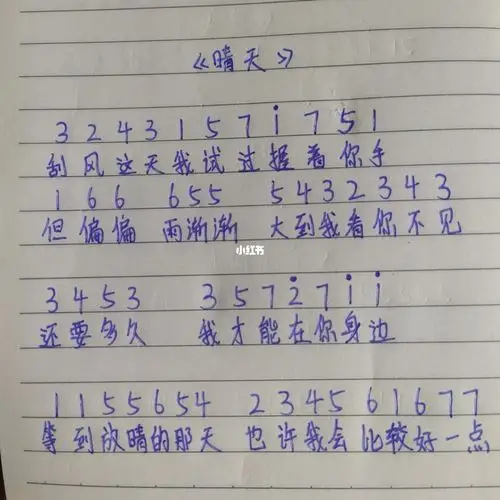 《晴天》
3 2 4 3 1 5 7 i 7 5 1
刮风这天我试过握着你手
1 6 6 6 5 5 5 4 3 2 3 4 3
但偏偏 雨渐渐 大到我看你不见
小红书
3 4 5 3 3 5 7 2̇ 7 i i
还要多久 我才能在你身边
1 1 5 5 6 5 4 2 3 4 5 6 1 6 7 7
等到放晴的那天 也许我会 比较好一点